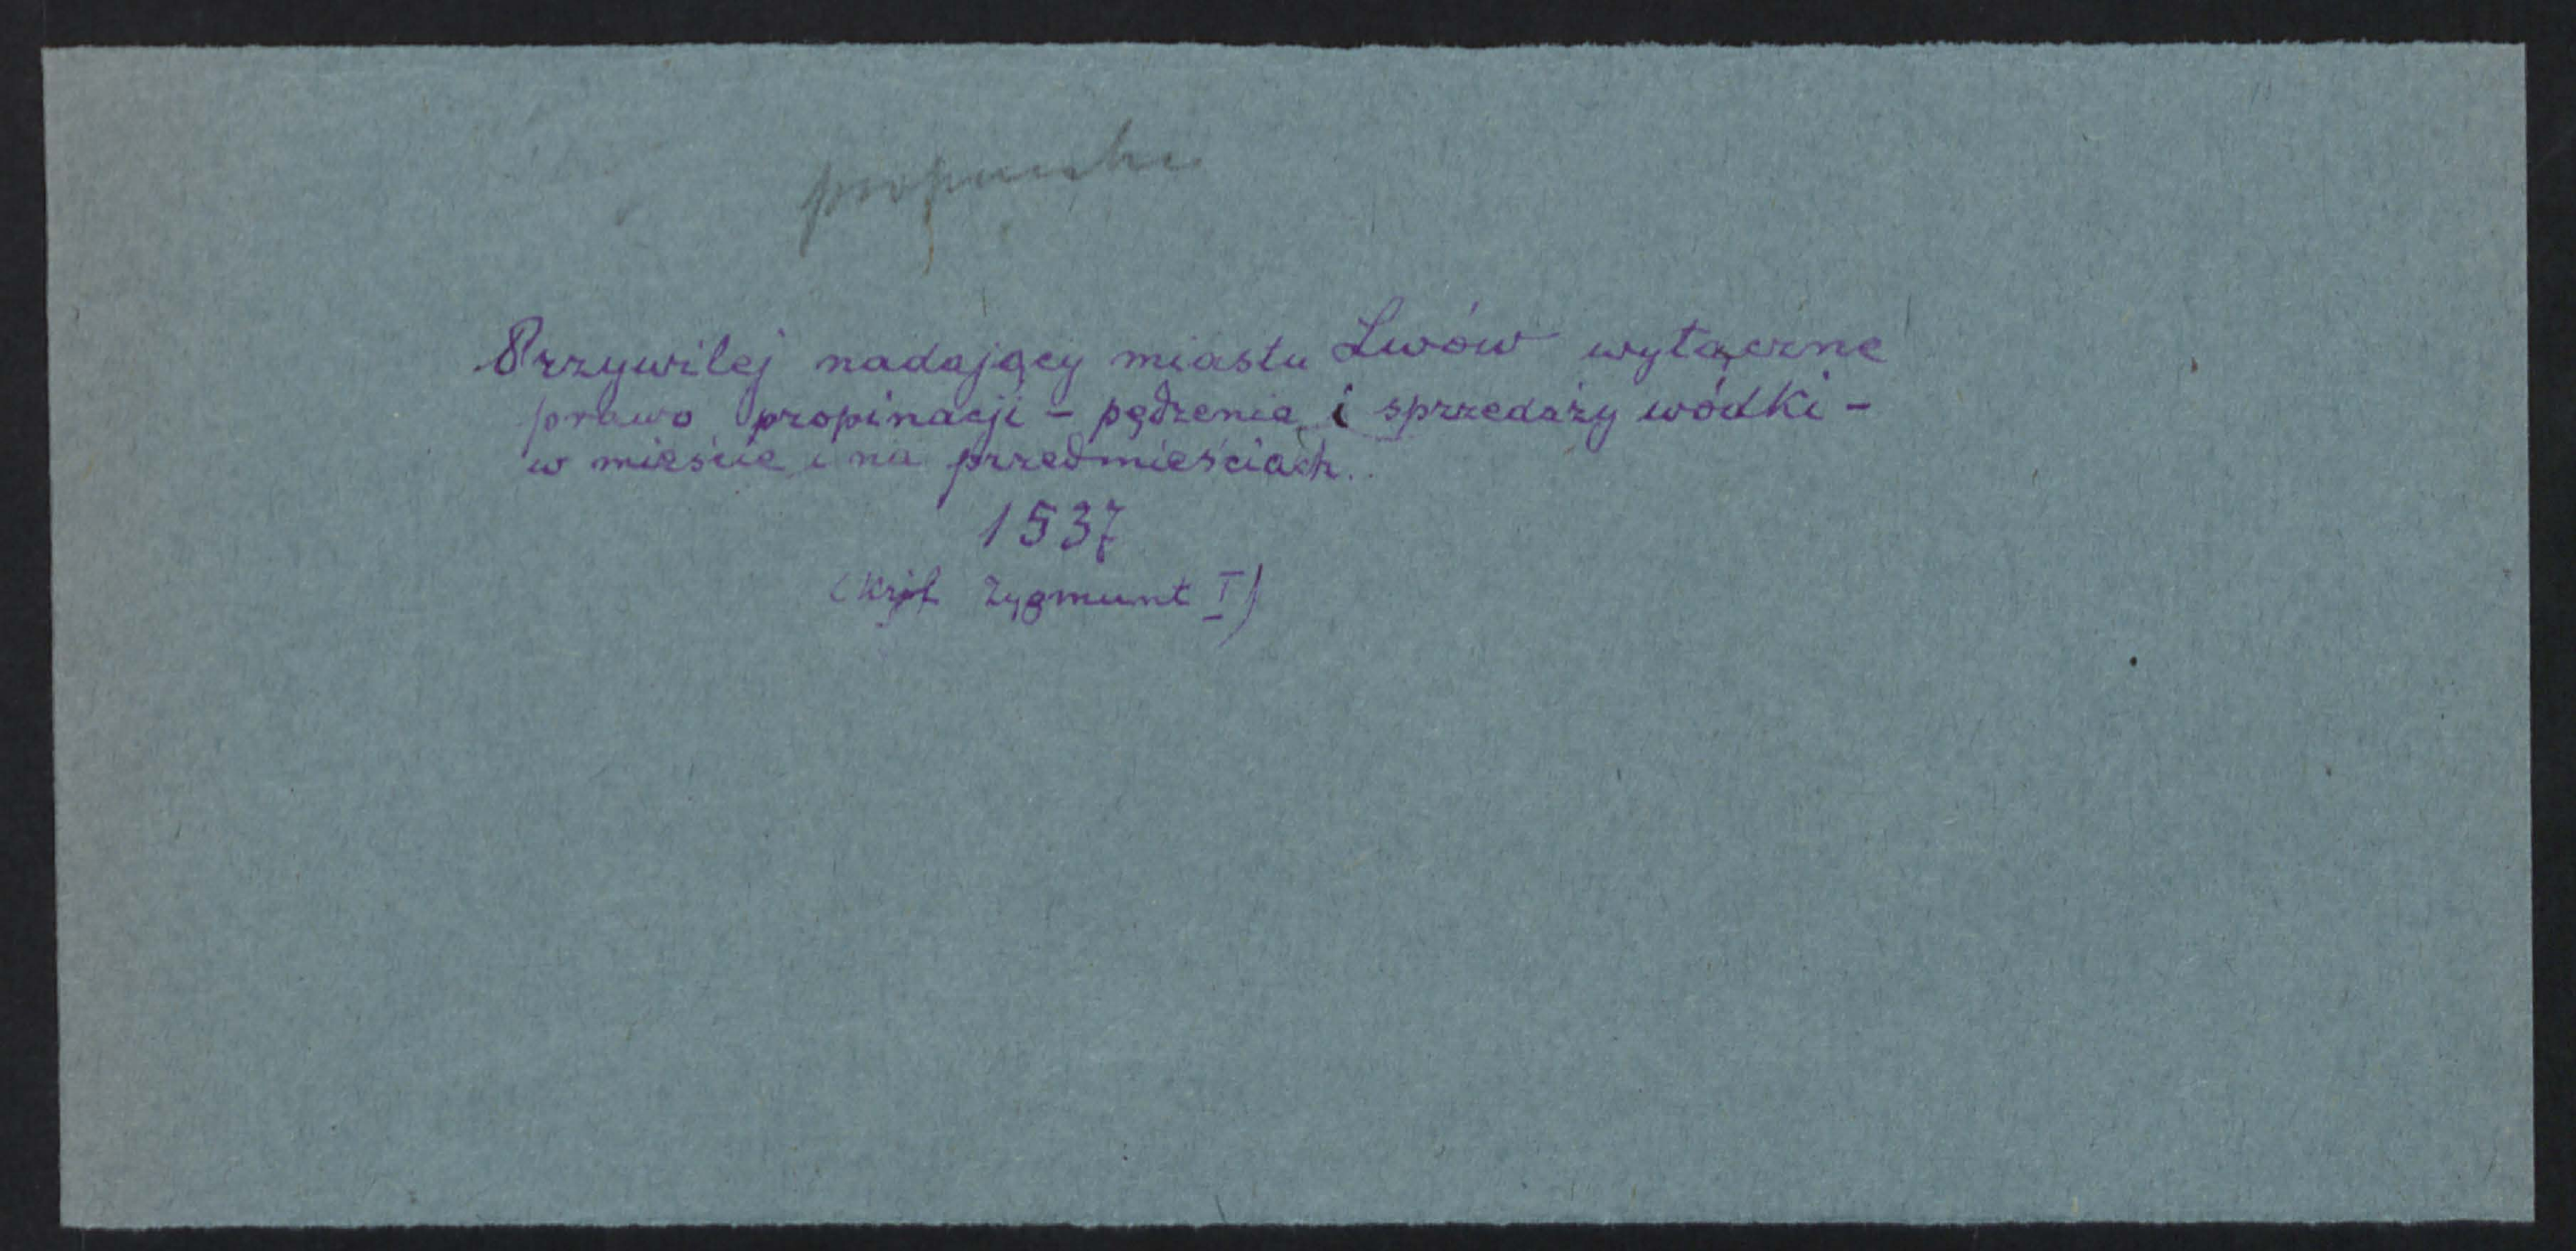 Przywilej nadający miastu Lwów wyłączne
prawo propinacji - pędzenia i sprzedaży wódki -
w mieście i na przedmieściach.
1537
(Król Zygmunt I)